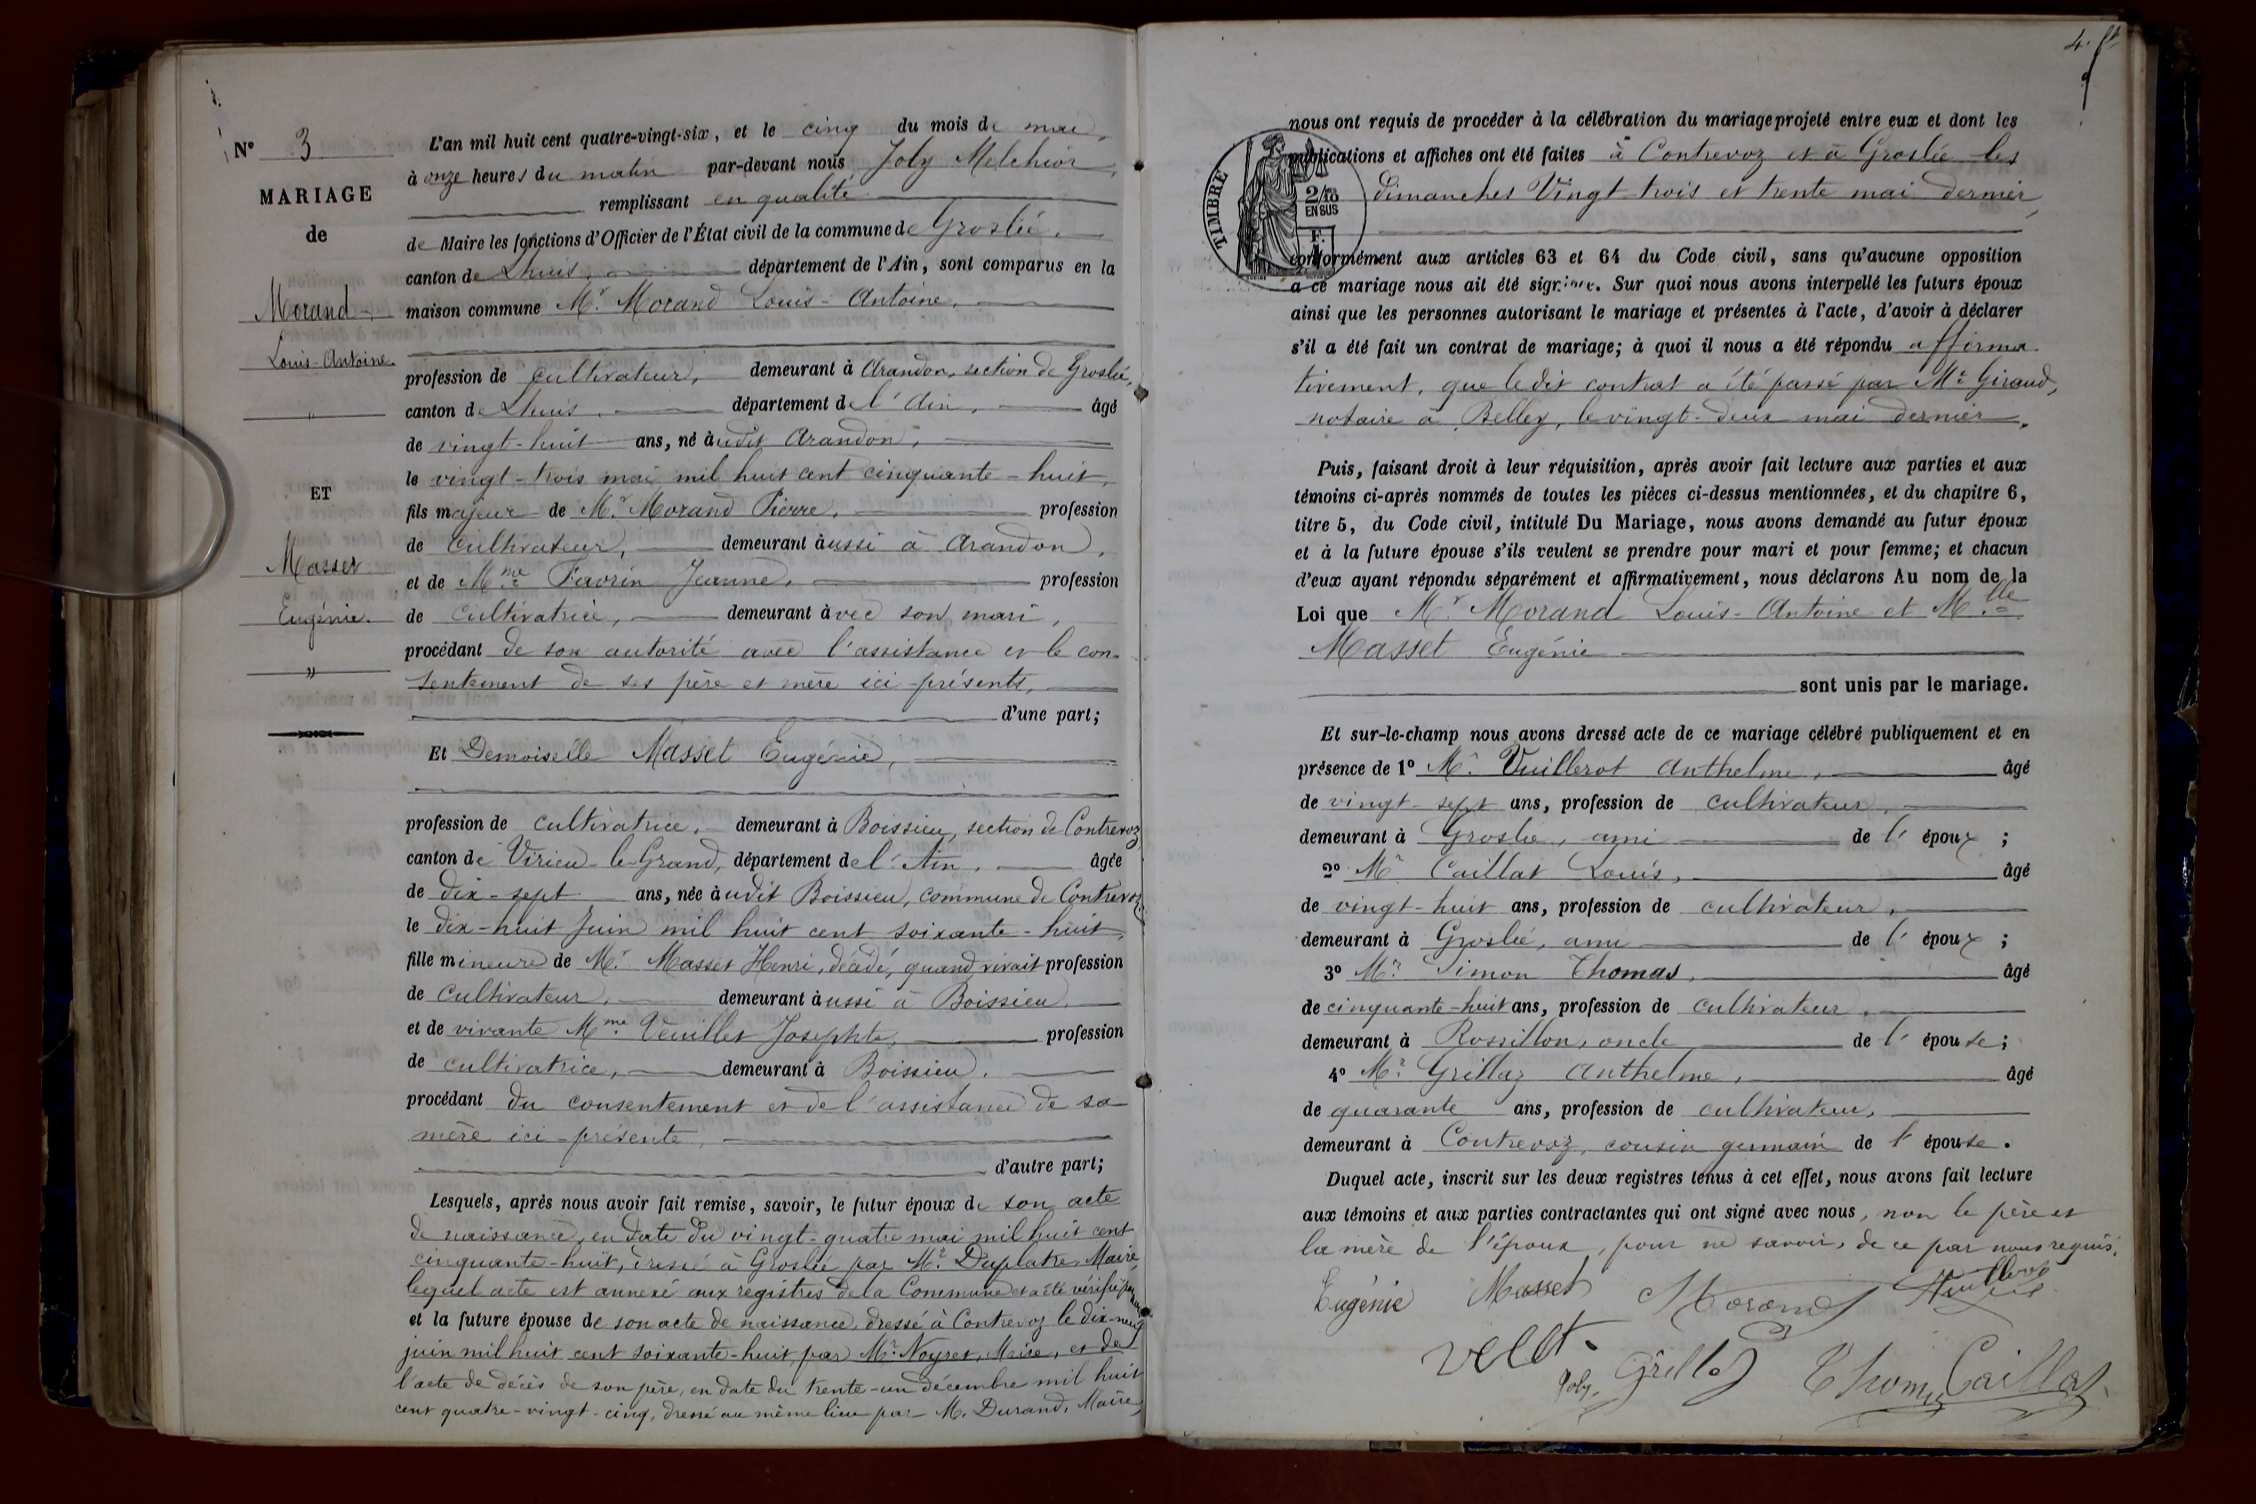 N° 3
MARIAGE
de
Morand
Louis-Antoine
"
ET
Masset
Eugénie.
"
L'an mil huit cent quatre-vingt-six, et le cinq du mois de
à onze heures du matin par-devant nous Joly Melchior,
remplissant en qualité
de Maire les fonctions d'Officier de l'État civil de la commune de Groslée,
canton de Lhuis, département de l'Ain, sont comparus en la
maison commune Mr. Morand Louis-Antoine,
profession de cultivateur, demeurant à Arandon, section de Groslée,
canton de Lhuis, département de l'Ain, âgé
de vingt-huit ans, né àudit Arandon,
le vingt-trois mai mil huit cent cinquante-huit,
fils majeur de Mr. Morand Pierre, profession
de cultivateur, demeurant àussi à Arandon,
et de Mme Favrin Jeanne, profession
de cultivatrice, demeurant àvec son mari,
procédant de son autorité avec l'assistance et le con-
sentement de ses père et mère ici-présents,
d'une part;
Et Demoiselle Masset Eugénie,
profession de cultivatrice, demeurant à Boissieu, section de Contrevoz
canton de Virieu-le-Grand, département de l'Ain, âgée
de dix-sept ans, née àudit Boissieu, commune de Contrevoz,
le dix-huit Juin mil huit cent soixante-huit,
fille mineure de Mr. Masset Henri, décédé, quand vivait profession
de cultivateur, demeurant àussi à Boissieu,
et de vivante Mme Veuillet Josephte, profession
de cultivatrice, demeurant à Boissieu,
procédant du consentement et de l'assistance de sa
mère ici-présente,
d'autre part;
Lesquels, après nous avoir fait remise, savoir, le futur époux de son acte
de naissance, en date du vingt-quatre mai mil huit cent
cinquante-huit, dressé à Groslée par Mr. Duplatre Maire,
lequel acte est annexé aux registres de la Commune et a été vérifié par
et la future épouse de son acte de naissance, dressé à Contrevoz le dix-neuf
juin mil huit cent soixante-huit, par Mr. Noyret, Maire, et de
l'acte de décès de son père, en date du trente-un décembre mil huit
cent quatre-vingt-cinq, dressé au même lieu par M. Durand, Maire,
4.
TIMBRE
2/10
EN SUS
nous ont requis de procéder à la célébration du mariage projeté entre eux et dont les
publications et affiches ont été faites à Contrevoz et à Groslée les
dimanches Vingt-trois et trente mai dernier,
conformément aux articles 63 et 64 du Code civil, sans qu'aucune opposition
à ce mariage nous ait été signifiée. Sur quoi nous avons interpellé les futurs époux
ainsi que les personnes autorisant le mariage et présentes à l'acte, d'avoir à déclarer
s'il a été fait un contrat de mariage; à quoi il nous a été répondu affirma-
tivement, que ledit contrat a été passé par Me Giraud,
notaire à Belley, le vingt-deux mai dernier,
Puis, faisant droit à leur réquisition, après avoir fait lecture aux parties et aux
témoins ci-après nommés de toutes les pièces ci-dessus mentionnées, et du chapitre 6,
titre 5, du Code civil, intitulé Du Mariage, nous avons demandé au futur époux
et à la future épouse s'ils veulent se prendre pour mari et pour femme; et chacun
d'eux ayant répondu séparément et affirmativement, nous déclarons Au nom de la
Loi que Mr. Morand Louis-Antoine et Mlle
Masset Eugénie
sont unis par le mariage.
Et sur-le-champ nous avons dressé acte de ce mariage célébré publiquement et en
présence de 1° Mr. Vuillerot Anthelme, âgé
de vingt-sept ans, profession de cultivateur,
demeurant à Groslée, ami de l'époux;
2° Mr Caillat Louis, âgé
de vingt-huit ans, profession de cultivateur,
demeurant à Groslée, ami de l'époux;
3° Mr. Simon Thomas, âgé
de cinquante-huit ans, profession de cultivateur,
demeurant à Rossillon, oncle de l'épouse;
4° Mr. Grillaz Anthelme, âgé
de quarante ans, profession de cultivateur,
demeurant à Contrevoz, cousin germain de l'épouse.
Duquel acte, inscrit sur les deux registres tenus à cet effet, nous avons fait lecture
aux témoins et aux parties contractantes qui ont signé avec nous, non le père et
la mère de l'époux, pour ne savoir, de ce par nous requis.
Eugénie Masset Morand
Joly. Thomas Caillat